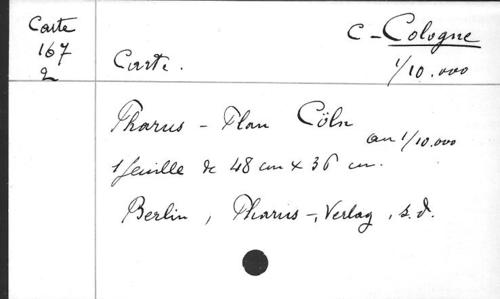 Carte
167
2
C - Cologne
1/10.000
Carte.
Pharus - Plan Cöln au 1/10.000
1 feuille de 48 cm x 36 cm.
Berlin, Pharus-Verlag, s.d.